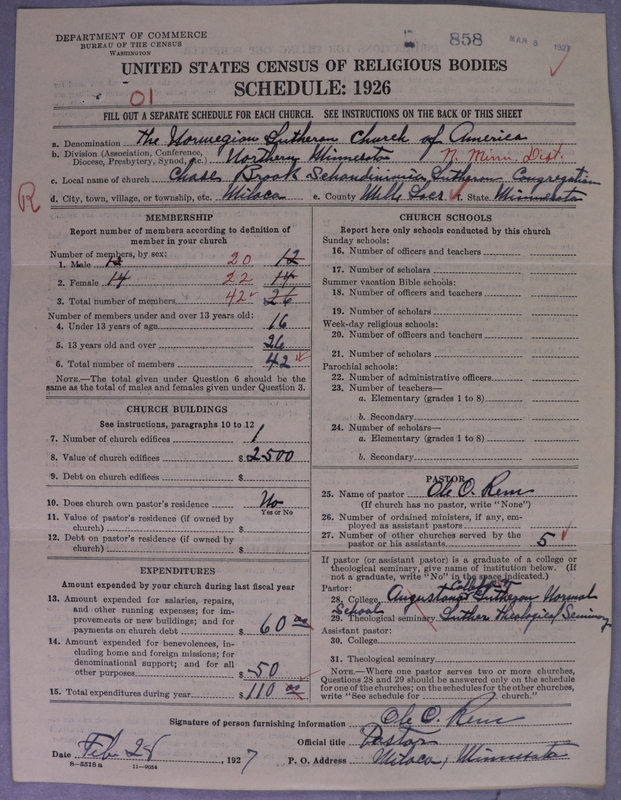 DEPARTMENT OF COMMERCE
BUREAU OF THE CENSUS
WASHINGTON
858
MAR 9 1927
UNITED STATES CENSUS OF RELIGIOUS BODIES
SCHEDULE: 1926
01
FILL OUT A SEPARATE SCHEDULE FOR EACH CHURCH. SEE INSTRUCTIONS ON THE BACK OF THIS SHEET
a. Denomination The Norwegian Lutheran Church of America
b. Division (Association, Conference, Diocese, Presbytery, Synod, etc.) Northern Minnesota N. Minn. Dist.
c. Local name of church Chase Brook Schandinavian Lutheran Congregation
R
d. City, town, village, or township, etc. Milaca e. County Mille Lacs f. State Minnesota
MEMBERSHIP
Report number of members according to definition of
member in your church
Number of members, by sex:
1. Male 12 20 12
2. Female 14 22 14
3. Total number of members 42 26
Number of members under and over 13 years old:
4. Under 13 years of age 16
5. 13 years old and over 26
6. Total number of members 42
NOTE.—The total given under Question 6 should be the
same as the total of males and females given under Question 3.
CHURCH BUILDINGS
See instructions, paragraphs 10 to 12
7. Number of church edifices 1
8. Value of church edifices $ 2500
9. Debt on church edifices $
10. Does church own pastor's residence No
Yes or No
11. Value of pastor's residence (if owned by
church) $
12. Debt on pastor's residence (if owned by
church) $
EXPENDITURES
Amount expended by your church during last fiscal year
13. Amount expended for salaries, repairs,
and other running expenses; for im-
provements or new buildings; and for
payments on church debt $ 60 00
14. Amount expended for benevolences, in-
cluding home and foreign missions; for
denominational support; and for all
other purposes $ 50
15. Total expenditures during year $ 110 00
CHURCH SCHOOLS
Report here only schools conducted by this church
Sunday schools:
16. Number of officers and teachers
17. Number of scholars
Summer vacation Bible schools:
18. Number of officers and teachers
19. Number of scholars
Week-day religious schools:
20. Number of officers and teachers
21. Number of scholars
Parochial schools:
22. Number of administrative officers
23. Number of teachers—
a. Elementary (grades 1 to 8)
b. Secondary
24. Number of scholars—
a. Elementary (grades 1 to 8)
b. Secondary
PASTOR
25. Name of pastor Ole O. Rem
(If church has no pastor, write "None")
26. Number of ordained ministers, if any, em-
ployed as assistant pastors
27. Number of other churches served by the
pastor or his assistants 5
If pastor (or assistant pastor) is a graduate of a college or
theological seminary, give name of institution below. (If
not a graduate, write "No" in the space indicated.)
Pastor:
28. College Augustana Lutheran Normal
School
29. Theological seminary Luther Theological Seminary
Assistant pastor:
30. College
31. Theological seminary
NOTE.—Where one pastor serves two or more churches,
Questions 28 and 29 should be answered only on the schedule
for one of the churches; on the schedules for the other churches,
write "See schedule for church."
Signature of person furnishing information Ole O. Rem
Official title Pastor
Date Feb 28, 1927 P. O. Address Milaca, Minnesota
8—5518 a 11—9054